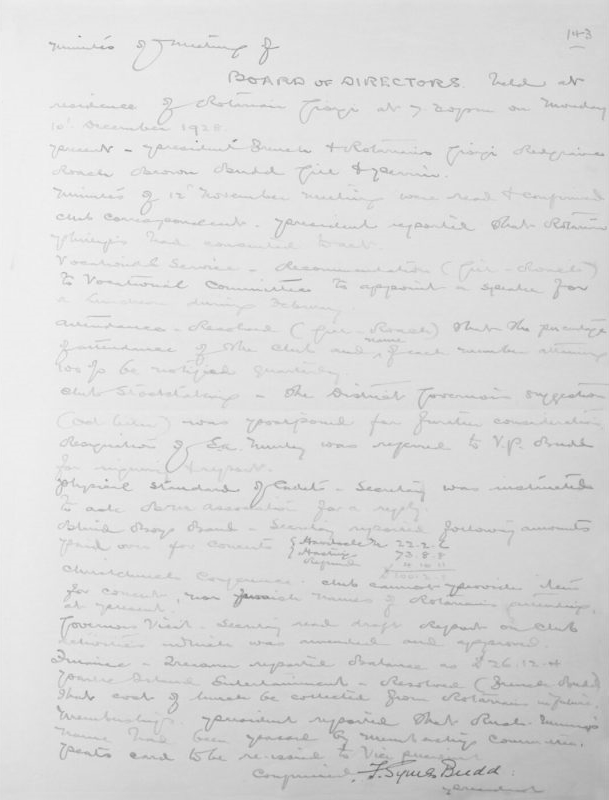 143
Minutes of Meeting of
BOARD OF DIRECTORS. held at
residence of Rotarian at 7.30pm on Monday
10' December 1928
Present - President & Rotarians
Roach Brown Budd &
Minutes of 12' November meeting were read & confirmed
Club Correspondent. President reported that Rotarian
had consented to act.
Vocational Service - Recommendation
to Vocational Committee to appoint a speaker for
a luncheon during
Attendance - Resolved ( - Roach) that the percentage
of attendance of the Club and name of each member attaining
100% be notified quarterly
Club Stocktaking - The District Governor's suggestion
was postponed for further consideration
Recognition of was referred to V.P. Budd
for inquiry & report.
Physical Standard of Cadets - Secretary was instructed
to ask association for a reply.
Boys Band - Secretary reported following amounts
paid over for concerts 22.2.6
Hastings 73.8.8
Christchurch Conference. Club cannot provide item
for concert, nor names of Rotarians
at present.
Governors Visit - Secretary read draft Report on Club
activities which was amended and approved.
Finance - Treasurer reported Balance as £26.12.4
Entertainment - Resolved ( Budd)
that cost of lunch be collected from Rotarians
Membership. President reported that
name had been passed by Membership Committee.
card to be re-issued to Vice President
Confirmed. F. Symes Budd.
President